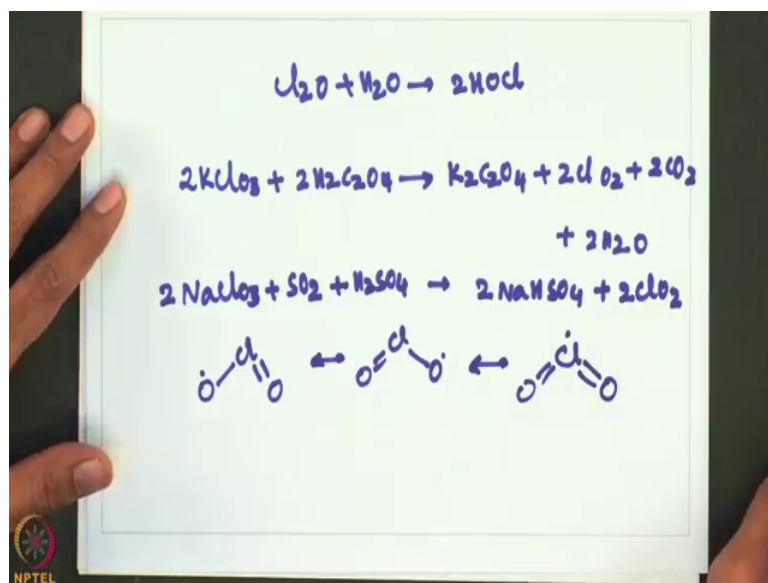 Cl2O + H2O → 2HOCl
2KClO3 + 2H2C2O4 → K2C2O4 + 2ClO2 + 2CO2
+ 2H2O
2NaClO3 + SO2 + H2SO4 → 2NaHSO4 + 2ClO2
Ȯ Cl O ↔ O Cl Ȯ ↔ O Ċl O
NPTEL